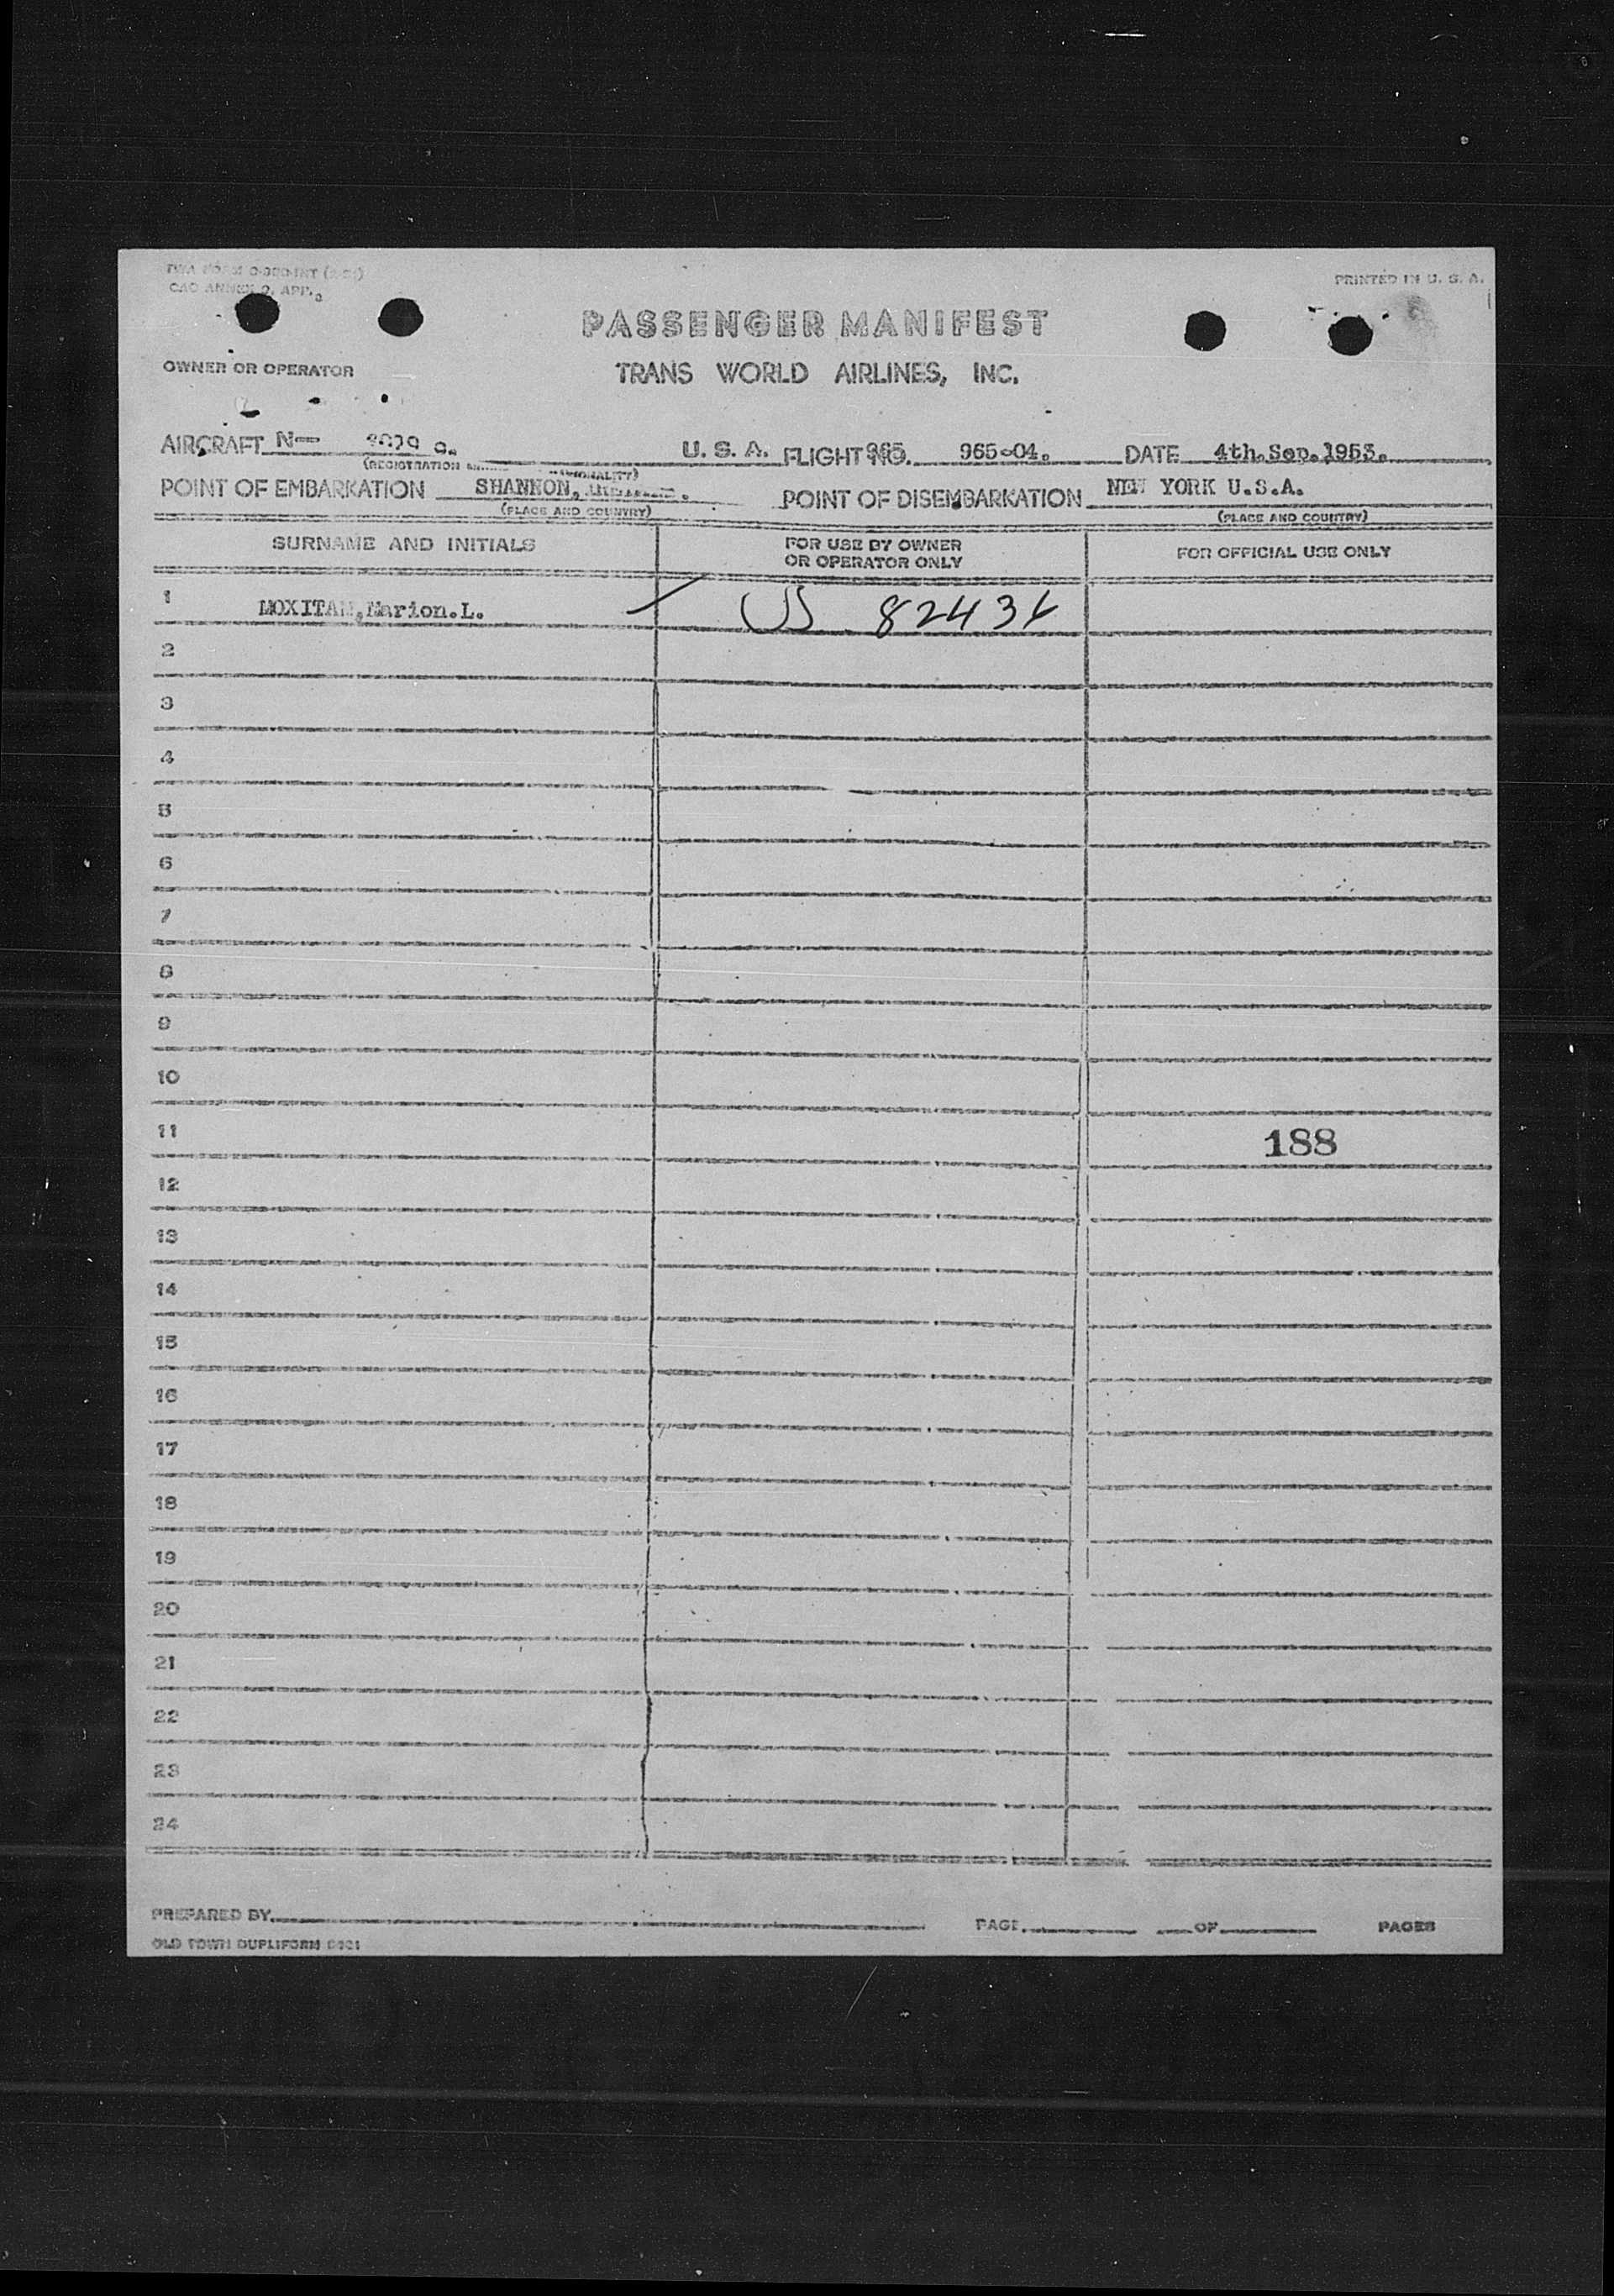 PRINTED IN U. S. A.
PASSENGER MANIFEST
OWNER OR OPERATOR
TRANS WORLD AIRLINES, INC.
AIRCRAFT N— U. S. A. FLIGHT NO. 965 965-04. DATE 4th.Sep.1953.
(REGISTRATION NATIONALITY)
POINT OF EMBARKATION SHANNON, POINT OF DISEMBARKATION NEW YORK U.S.A.
(PLACE AND COUNTRY) (PLACE AND COUNTRY)
SURNAME AND INITIALS FOR USE BY OWNER OR OPERATOR ONLY FOR OFFICIAL USE ONLY
1 Marion.L. US
2
3
4
5
6
7
8
9
10
11 188
12
13
14
15
16
17
18
19
20
21
22
23
24
PREPARED BY PAGE OF PAGES
OLD TOWN DUPLIFORM